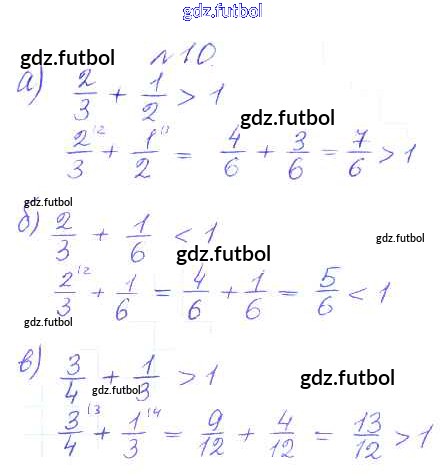 gdz.futbol
№10.
gdz.futbol
а) 2/3 + 1/2 > 1
gdz.futbol
2/3 ⁽² + 1/2 ⁽³ = 4/6 + 3/6 = 7/6 > 1
gdz.futbol
б) 2/3 + 1/6 < 1
gdz.futbol
gdz.futbol
2/3 ⁽² + 1/6 = 4/6 + 1/6 = 5/6 < 1
gdz.futbol
в) 3/4 + 1/3 > 1
gdz.futbol
gdz.futbol
3/4 ⁽³ + 1/3 ⁽⁴ = 9/12 + 4/12 = 13/12 > 1